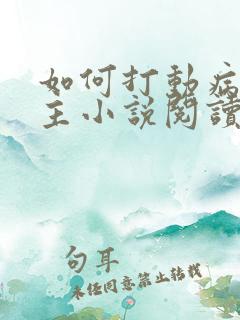 如何打動病
主小說閱讀
句耳
未经同意禁止转载